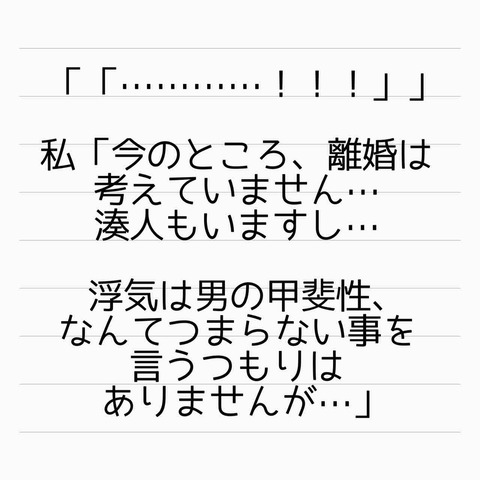 「「…………！！！」」
私「今のところ、離婚は
考えていません…
湊人もいますし…
浮気は男の甲斐性、
なんてつまらない事を
言うつもりは
ありませんが…」